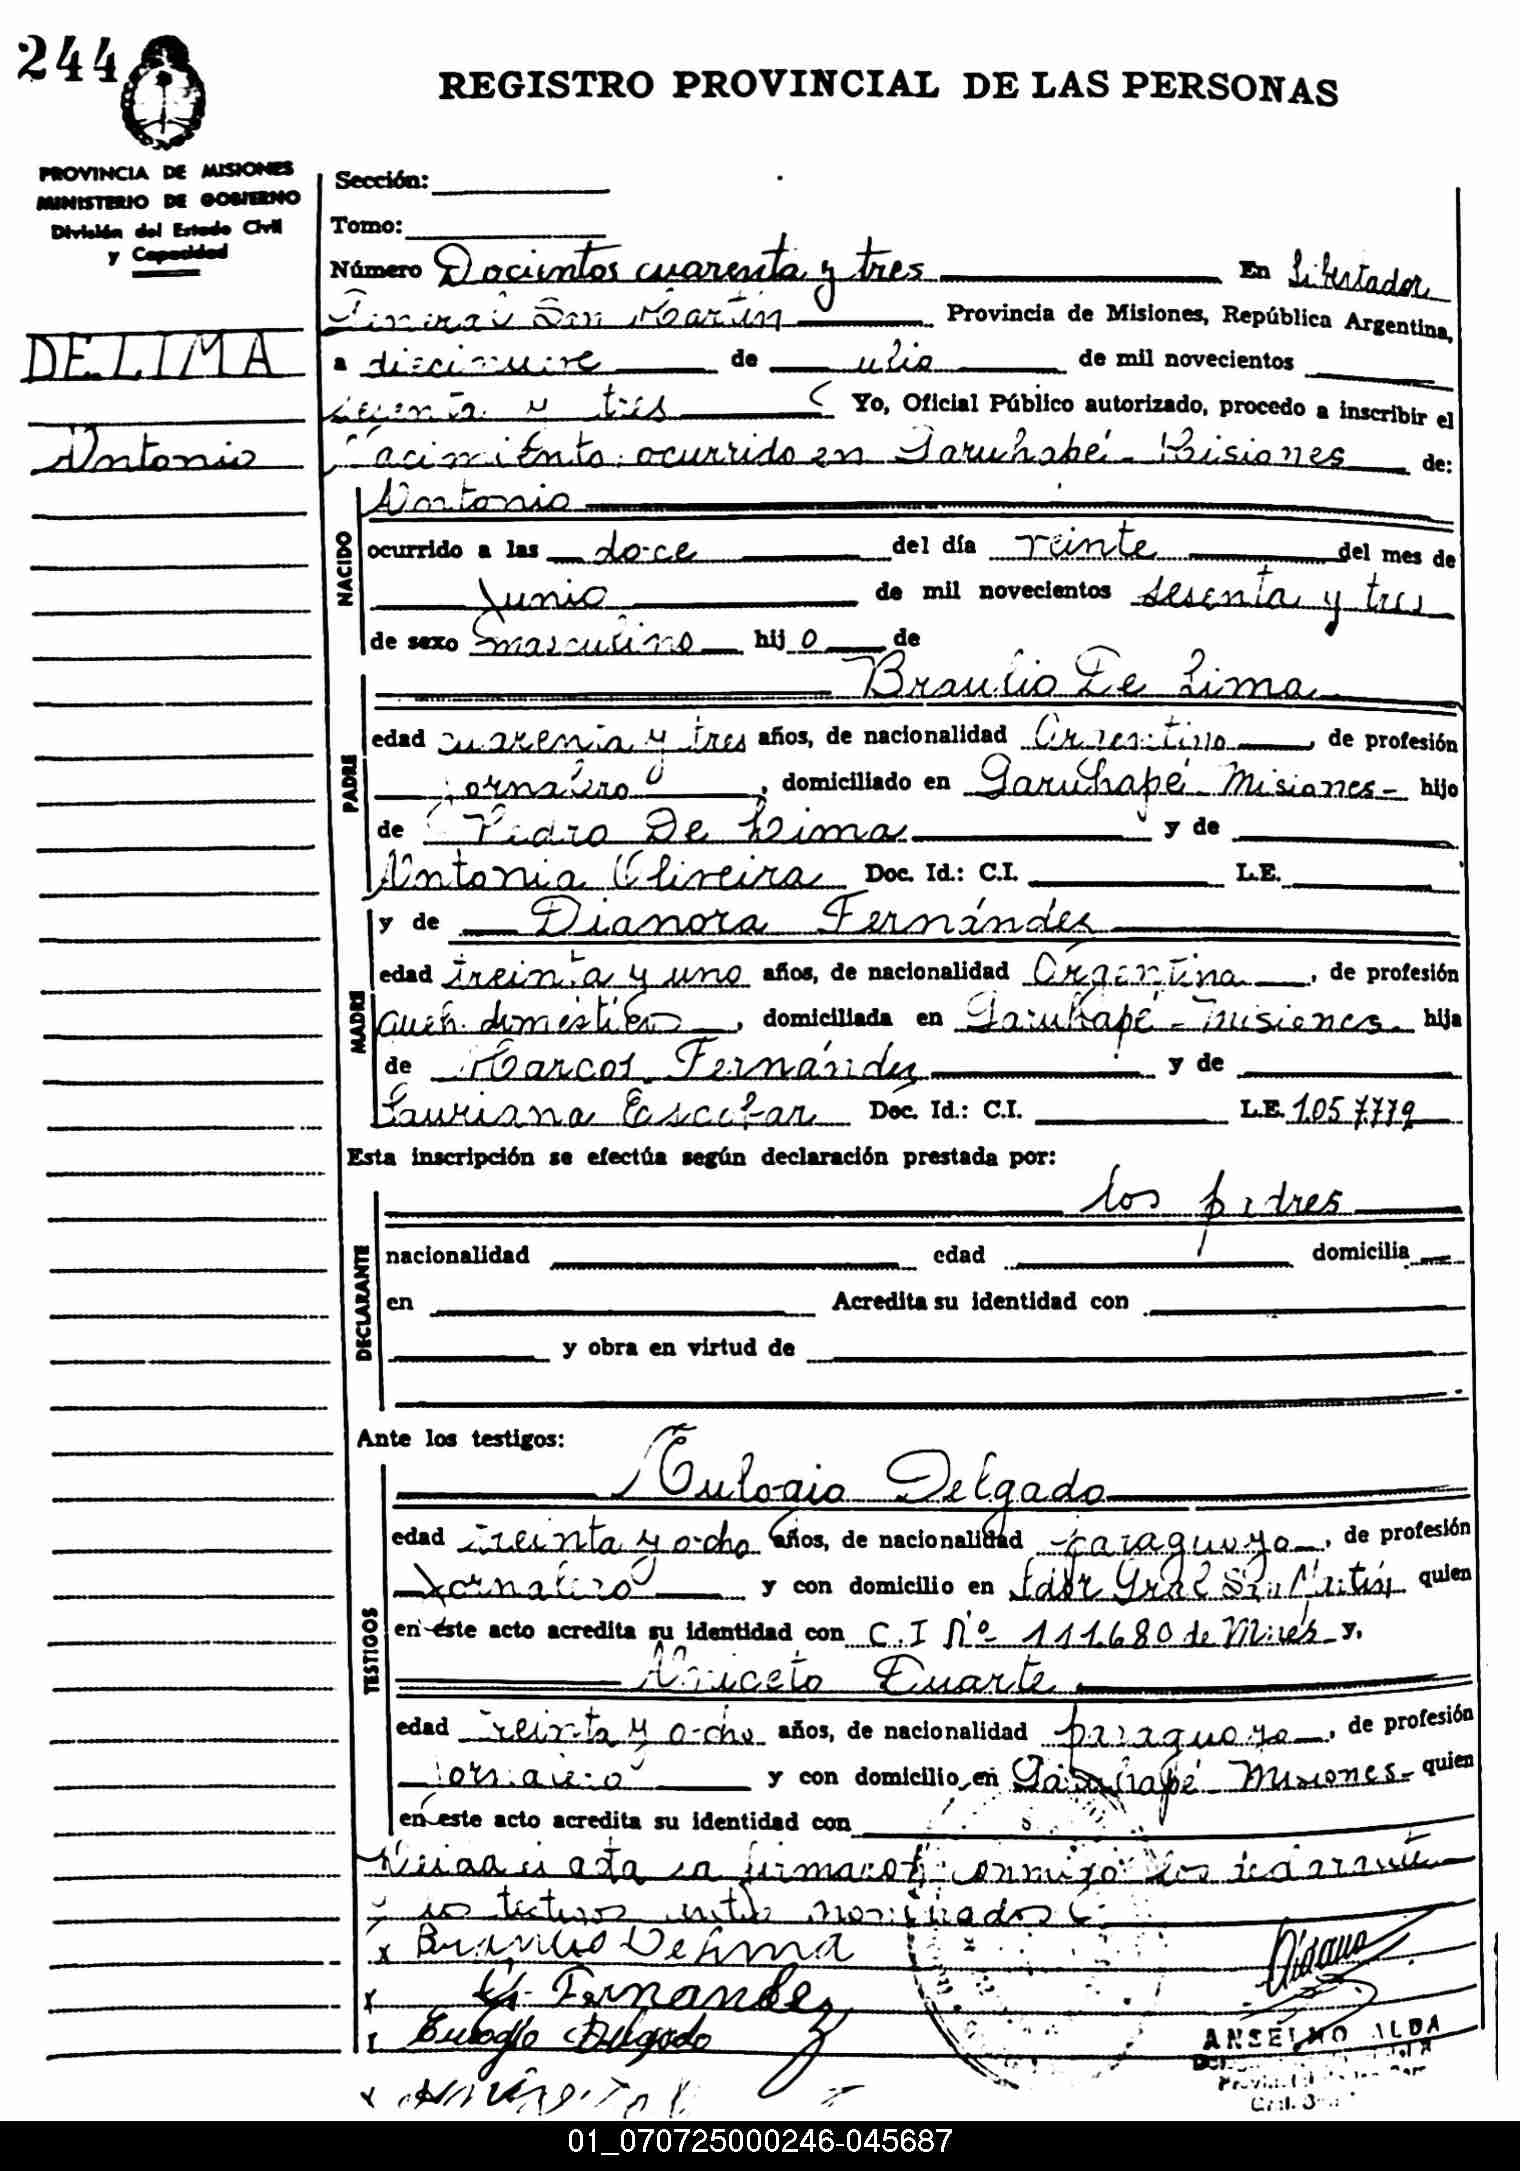 244
REGISTRO PROVINCIAL DE LAS PERSONAS
PROVINCIA DE MISIONES
MINISTERIO DE GOBIERNO
División del Estado Civil
y Capacidad
DE LIMA
Antonio
Sección:
Tomo:
Número Docientos cuarenta y tres En Libertador
General San Martín Provincia de Misiones, República Argentina,
a diecinueve de Julio de mil novecientos
sesenta y tres Yo, Oficial Público autorizado, procedo a inscribir el
Nacimiento ocurrido en Garuhapé - Misiones de:
NACIDO
Antonio
ocurrido a las doce del día veinte del mes de
Junio de mil novecientos sesenta y tres
de sexo masculino hijo de
PADRE
Braulio De Lima
edad cuarenta y tres años, de nacionalidad Argentino, de profesión
jornalero, domiciliado en Garuhapé - Misiones - hijo
de Pedro De Lima y de
Antonia Oliveira Doc. Id.: C.I. L.E.
MADRE
y de Dianora Fernández
edad treinta y uno años, de nacionalidad Argentina, de profesión
queh. domésticos, domiciliada en Garuhapé - Misiones - hija
de Marcos Fernández y de
Lauriana Escobar Doc. Id.: C.I. L.E. 1.057.779
Esta inscripción se efectúa según declaración prestada por:
DECLARANTE
los padres
nacionalidad edad domicilia
en Acredita su identidad con
y obra en virtud de
Ante los testigos:
TESTIGOS
Eulogio Delgado
edad treinta y ocho años, de nacionalidad paraguayo, de profesión
Jornalero y con domicilio en Ldor Gral San Martín quien
en este acto acredita su identidad con C.I Nº 111.680 de Mnes y,
Aniceto Duarte
edad treinta y ocho años, de nacionalidad paraguayo, de profesión
jornalero y con domicilio en Garuhapé - Misiones - quien
en este acto acredita su identidad con
acta la firmaron conmigo los declarante
y los testigos nombrados
x Braulio Delima
x Fernandez
x Eulogio Delgado
x
ANSELMO ALBA
01_070725000246-045687